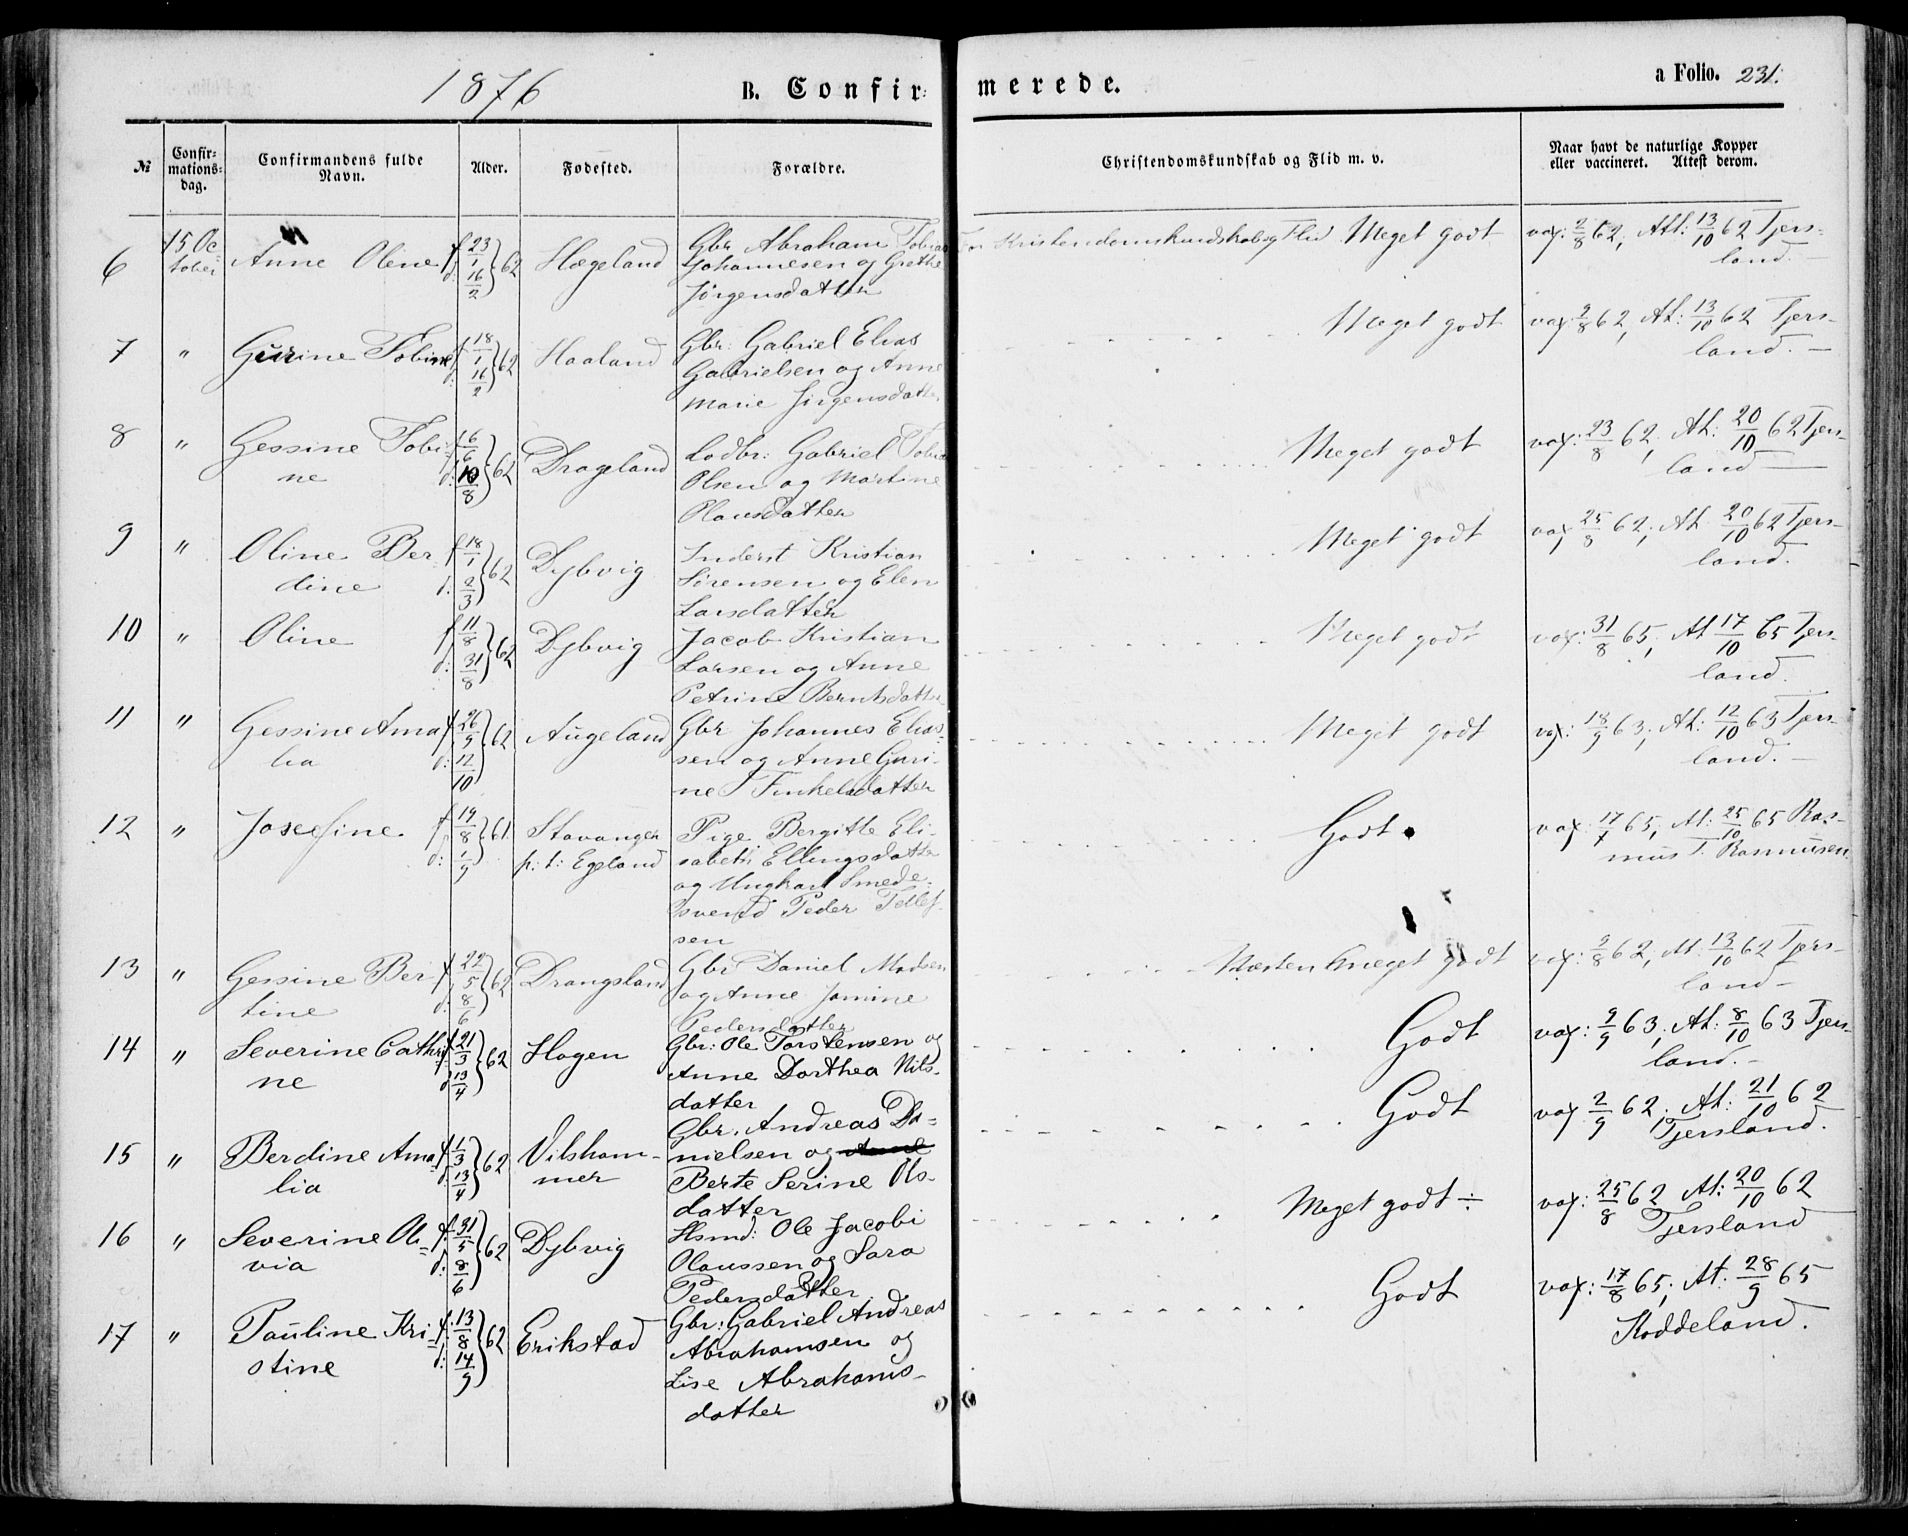 1876
B. Confirmerede.
a Folio. 231.
№
Confirmationsdag.
Confirmandens fulde Navn.
Alder.
Fødested.
Forældre.
Christendomskundskab og Flid m. v.
Naar havt de naturlige Kopper eller vaccineret. Attest derom.
6 15 October Anne Oline f 23/1 d: 16/2 }62 Hægeland Gbr Abraham Tobias
Johannesen og Grethe
Jørgensdatter
For Kristendomskundskab og Flid Meget godt vax: 2/8 62, Att: 13/10 62 Tjers-
land.
7 " Gurine Tobine f 18/1 d: 16/2 }62 Haaland Gbr: Gabriel Elias
Gabrielsen og Anne
Marie Jørgensdatter
Meget godt vax: 2/8 62, At: 13/10 62 Tjers-
land.
8 " Gessine Tobi-
ne f 6/6 d: 10/8 }62 Drageland Lodbr: Gabriel Tobias
Olsen og Martine
Olausdatter
Meget godt vax: 23/8 62, At: 20/10 62 Tjers-
land
9 " Oline Ber
dine f 18/1 d: 2/3 }62 Dybvig Inderst Kristian
Sørensen og Elen
Larsdatter
Meget godt vax 25/8 62, At 20/10 62 Tjers-
land.
10 " Oline f 11/8 d: 31/8 }62 Dybvig Jacob Kristian
Larsen og Anne
Petrine Berntsdatter
Meget godt vax: 31/8 65, At 17/10 65 Tjers-
land.
11 " Gessine Ama
lia f 26/9 d: 12/10 }62 Augeland Gbr Johannes Elias-
sen og Anne Guri-
ne T Finkelsdatter
Meget godt vax: 18/9 63, At: 12/10 63 Tjers-
land.
12 " Josefine f 19/8 d: 1/9 }61. Stavanger
p: t: Egeland Pige Bergitte Eli-
sabeth Ellingsdatter
og Ungkarl Smede-
svend Peder Tellef-
sen
Godt. vax: 17/7 65, At: 25/10 65 Ras-
mus T. Rasmusen
13 " Gessine Ber
tine f 22/5 d: 8/6 }62 Drangsland Gbr Daniel Madsen
og Anne Jamine
Pedersdatter
Næsten meget godt vax: 9/8 62, At. 13/10 62 Tjers-
land-
14 " Severine Cathri-
ne f 21/3 d 13/4 }62 Hagen Gbr: Ole Torstensen og
Anne Dorthea Nils-
datter
Godt vax: 9/9 63, At: 8/10 63 Tjers-
land.-
15 " Berdine Ama-
lia f 1/3 d: 13/4 }62 Vilsham-
mer Gbr. Andreas Da-
nielsen og Anne
Berte Serine Ols-
datter
Godt vax 2/9 62, At: 21/10 62
Tjersland.
16 " Severine Oli-
via f. 31/5 d: 8/6 }62 Dybvig Hsmd: Ole Jacobi
Olaussen og Sara
Pedersdatter
Meget godt ÷ vax: 25/8 62 At: 20/10 62
Tjersland
17 " Pauline Kri-
stine f: 13/8 d: 14/9 }62 Erikstad Gbr: Gabriel Andreas
Abrahamsen og
Lise Abrahams-
datter
Godt vax: 17/8 65, At: 28/9 65
Hoddeland.